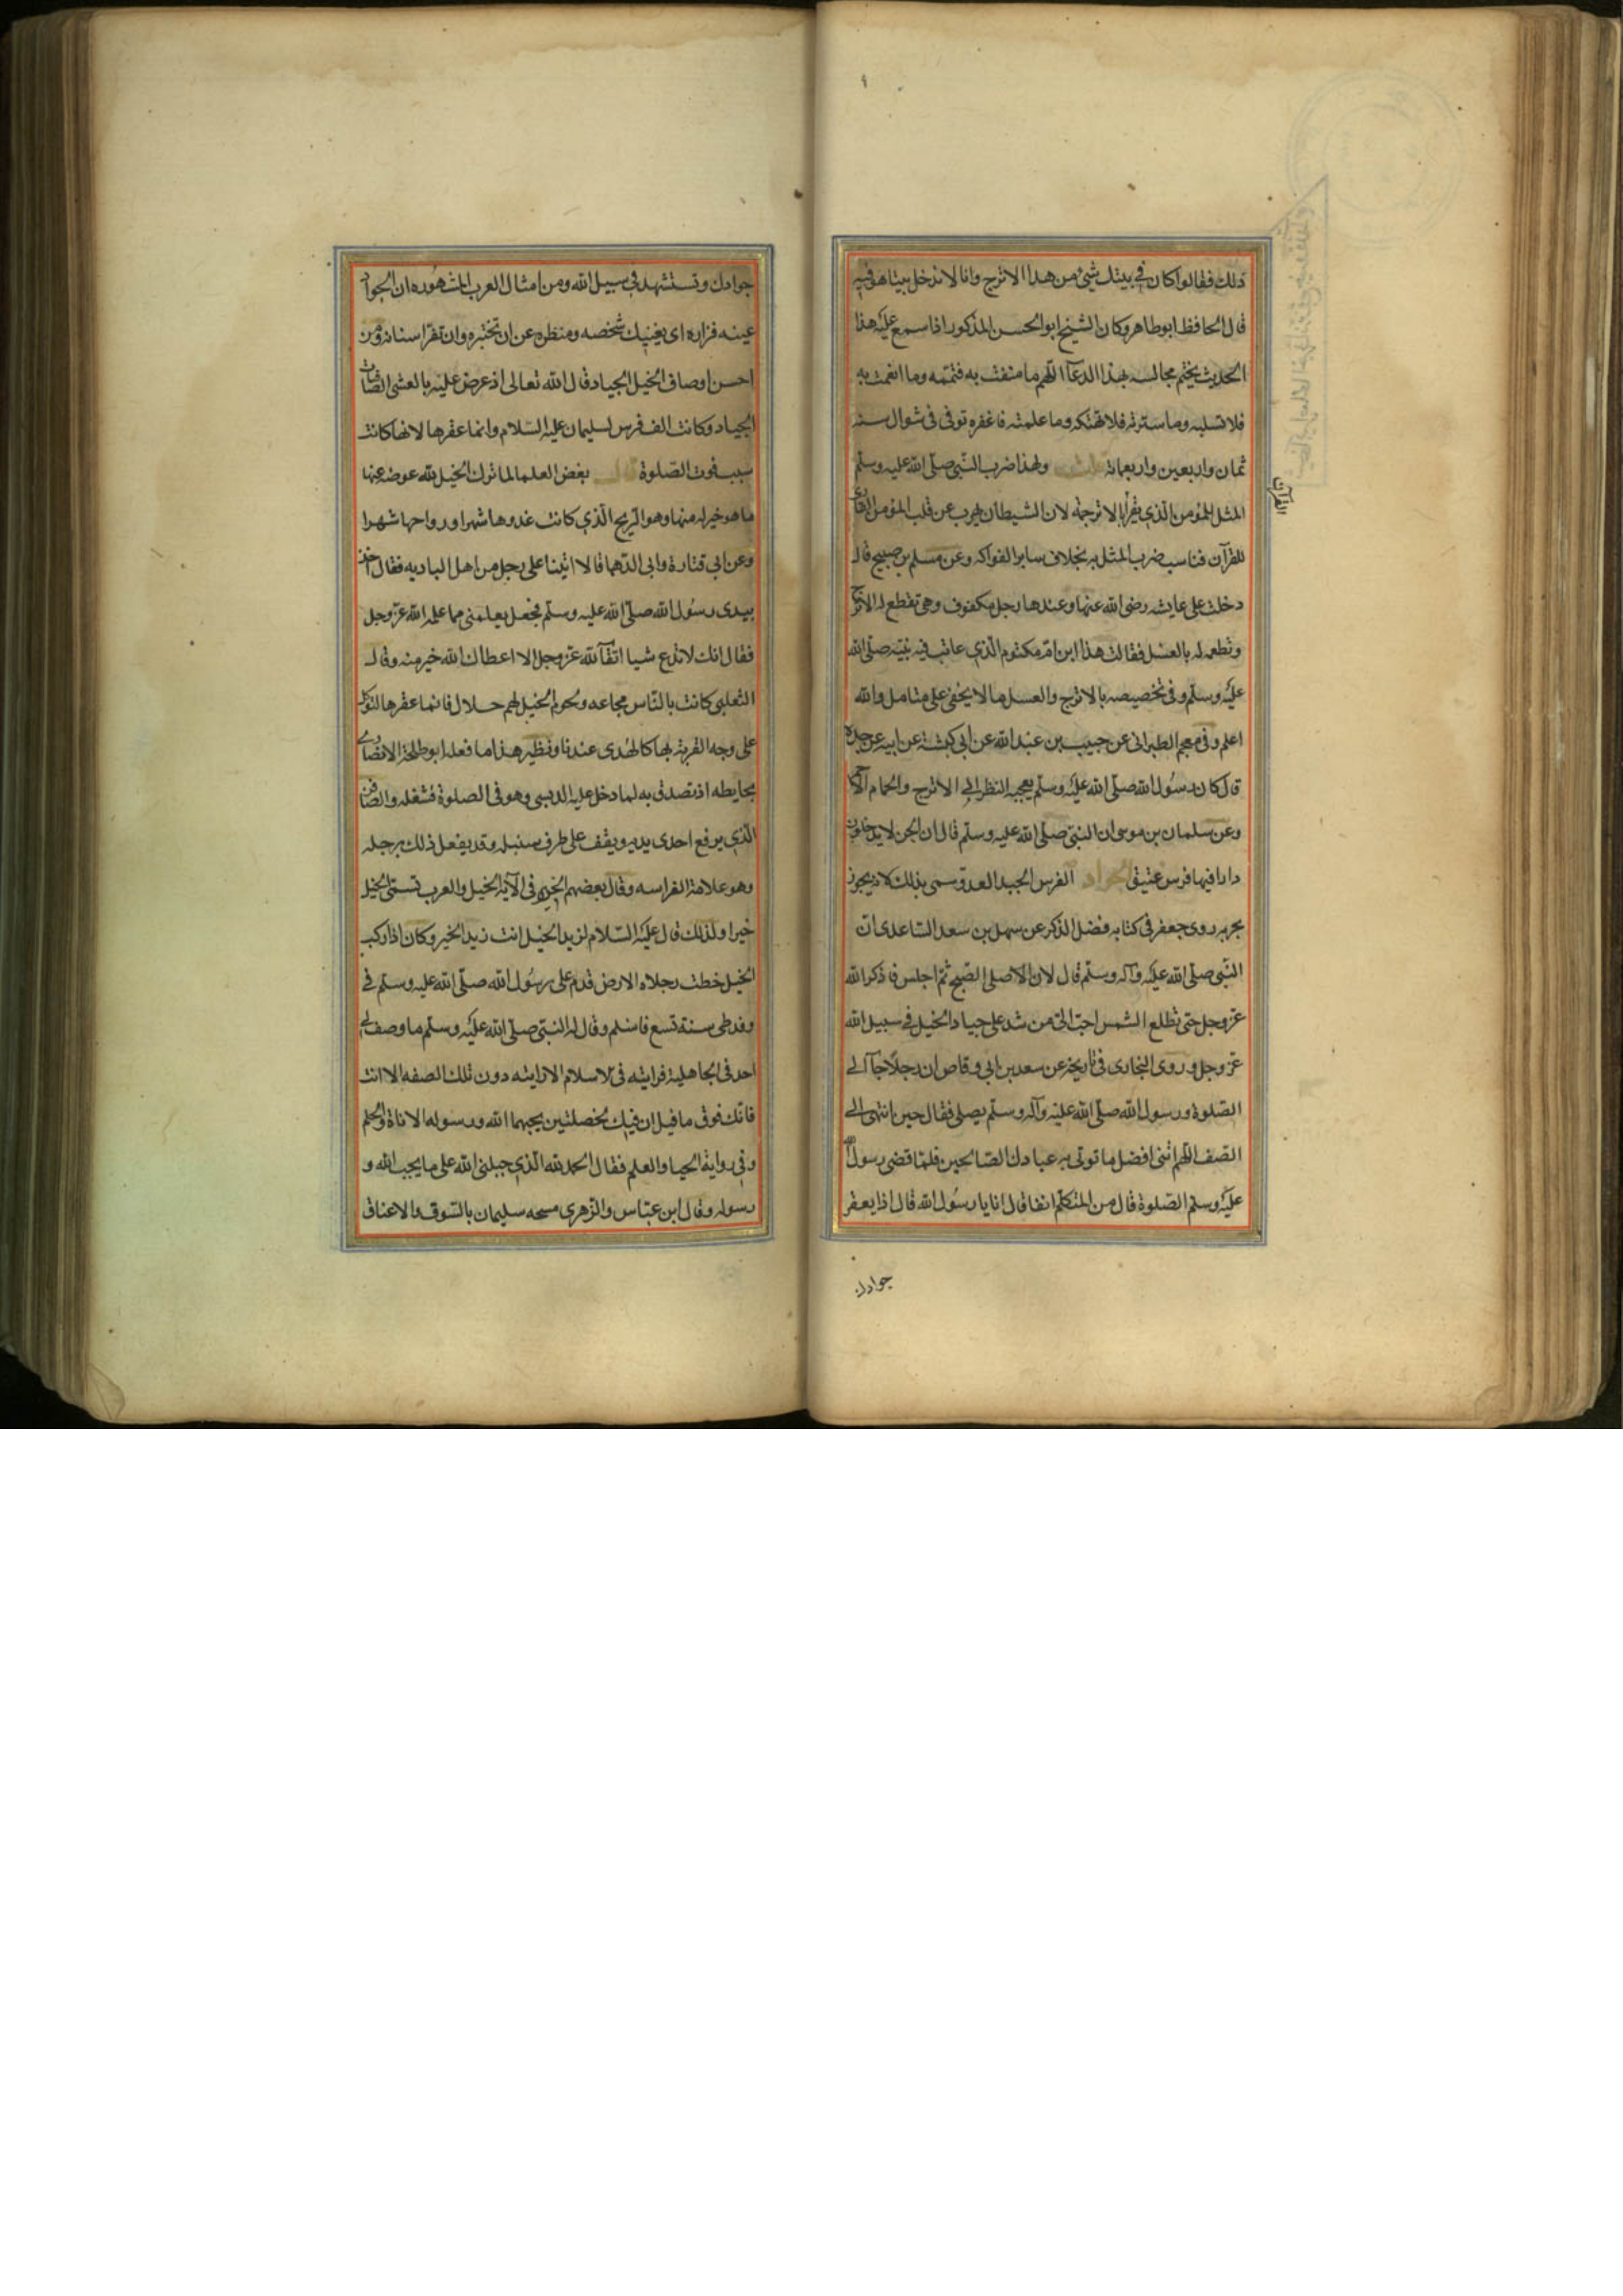 ذلك فقالوا كان في بيتك شيئ من هذا الاترج وانا لا ندخل بيتا هو فيه
قال الحافظ ابو طاهر وكان الشيخ ابو الحسن المذكور اذا سمع عليه هذا
الحديث يختم مجالسه بهذا الدعآ اللهم ما مننت به فتممه وما انعمت به
فلا تسلبه وما سترته فلا تهتكه وما علمته فاغفره توفى فى شوال سنه
ثمان واربعين واربعمائة ولهذا ضرب النبي صلى الله عليه وسلم
المثل للمؤمن الذي يقرأ بالاترجة لان الشيطان يهرب عن قلب المؤمن القارى
القرآن
للقرآن فناسب ضرب المثل به بخلاف ساير الفواكه وعن مسلم بن صبيح قال
دخلت على عايشه رضى الله عنها وعندها رجل مكفوف وهى تقطع له الاترج
وتطعمه له بالعسل فقالت هذا ابن ام مكتوم الذي عاتب فيه نبيه صلى الله
عليه وسلم وفى تخصيصه بالاترج والعسل ما لا يخفى على متامل والله
اعلم وفى معجم الطبرانى عن حبيب بن عبد الله عن ابى كبشة عن ابيه عن جده
قال كان رسول الله صلى الله عليه وسلم يعجبه النظر الى الاترج والحمام
وعن سلمان بن موسى ان النبي صلى الله عليه وسلم قال ان الجن لا يدخلون
دارا فيها فرس عتيق الجواد الفرس الجيد العدو سمى بذلك لانه يجود
بجريه روى جعفر فى كتابه فضل الذكر عن سهل بن سعد الساعدى ان
النبي صلى الله عليه وآله وسلم قال لان الاصلى الصبح ثم اجلس فاذكر الله
عز وجل حتى تطلع الشمس احب الى من شد على جياد الخيل في سبيل الله
عز وجل وروى البخارى فى تاريخه عن سعد بن ابى وقاص ان رجلا جآ الى
الصلوة ورسول الله صلى الله عليه وآله وسلم يصلى فقال حين انتهى الى
الصف اللهم اتنى افضل ما توتى به عبادك الصالحين فلما قضى رسول الله
عليه وسلم الصلوة قال من المتكلم انفا قال انا يا رسول الله قال اذا يعقر
جوادك
جوادك وتستشهد في سبيل الله ومن امثال العرب المشهوده ان الجواد
عينه فراره اى يغنيك شخصه ومنظره عن ان تختبره وان تفر اسنانه ومن
احسن اوصاف الخيل الجياد قال الله تعالى اذ عرض عليه بالعشى الصافنات
الجياد وكانت الف فرس لسليمان عليه السلام وانما عقرها لانها كانت
سبب فوت الصلوة قال بعض العلما لما ترك الخيل لله عوضه عنها
ما هو خير له منها وهو الريح الذي كانت غدوها شهرا ورواحها شهرا
وعن ابى قتادة وابى الدهما قالا اتينا على رجل من اهل الباديه فقال اخذ
بيدى رسول الله صلى الله عليه وسلم فجعل يعلمنى مما علمه الله عز وجل
فقال انك لا تدع شيا اتقآ لله عز وجل الا اعطاك الله خير منه وقال
الثعلبى كانت بالناس مجاعه ولحوم الخيل لهم حلال فانما عقرها لتوكل
على وجه القربة بها كالهدى عندنا ونظير هذا ما فعله ابو طلحة الانصارى
بحايطه اذ تصدق به لما دخل عليه الدبسى وهو فى الصلوة فشغله والصافن
الذي يرفع احدى يديه ويقف على طرف سنبله وقد يفعل ذلك برجله
وهو علامة الفراسه وقال بعضهم الخير فى الآية الخيل والعرب تسمى الخيل
خيرا ولذلك قال عليه السلام لزيد الخيل انت زيد الخير وكان اذا ركب
الخيل خطت رجلاه الارض قدم على رسول الله صلى الله عليه وسلم في
وفد طى سنة تسع فاسلم وقال له النبي صلى الله عليه وسلم ما وصف لى
احد فى الجاهلية فرايته فى الاسلام الا رايته دون تلك الصفه الا انت
فانك فوق ما قيل ان فيك لخصلتين يحبهما الله ورسوله الاناة والحلم
وفى رواية الحيا والعلم فقال الحمد لله الذي جبلنى الله على ما يحب الله و
رسوله وقال ابن عباس والزهرى مسحه سليمان بالسوق والاعناق